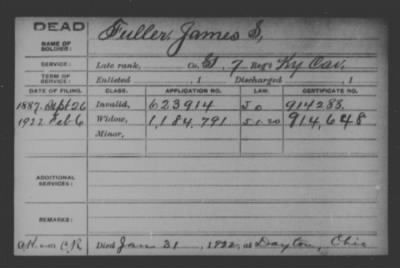 DEAD
NAME OF SOLDIER: Fuller, James S,
SERVICE: Late rank, Co. G, 7 Reg't Ky Cav.
TERM OF SERVICE: Enlisted , 1 Discharged , 1
DATE OF FILING. CLASS. APPLICATION NO. LAW. CERTIFICATE NO.
1887. Sept 26 Invalid, 623914 914283.
1922 Feb 6 Widow, 1,184,791 5.1.20 914,648
Minor,
ADDITIONAL SERVICES:
REMARKS:
Died Jan 31, 1922, at Dayton, Ohio